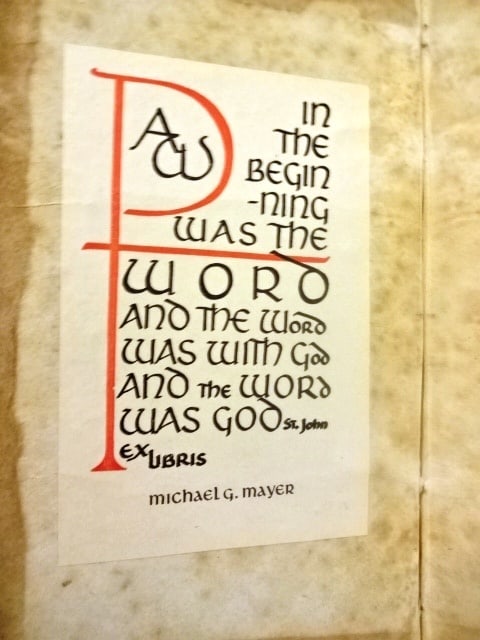 A
W
IN
THE
BEGIN
-NING
WAS THE
WORD
AND THE WORD
WAS WITH GOD
AND THE WORD
WAS GOD St. John
EX LIBRIS
MICHAEL G. MAYER